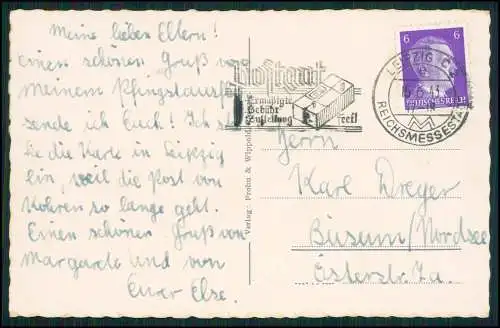 Meine lieben Eltern!
Einen schönen Gruß von
meinem Pfingstausflug
sende ich Euch! Ich
die Karte in Leipzig
ein, weil die Post von
Kohren so lange geht.
Einen schönen Gruß von
Margarete und von
Eurer Else.
Verlag: Prohn &
Postgut
Ermäßigte
Gebühr
Zustellung frei
6
DEUTSCHES REICH
LEIPZIG C2
REICHSMESSESTADT
Herrn
Karl Dreyer
Büsum/Nordsee
Österstr. 7a.